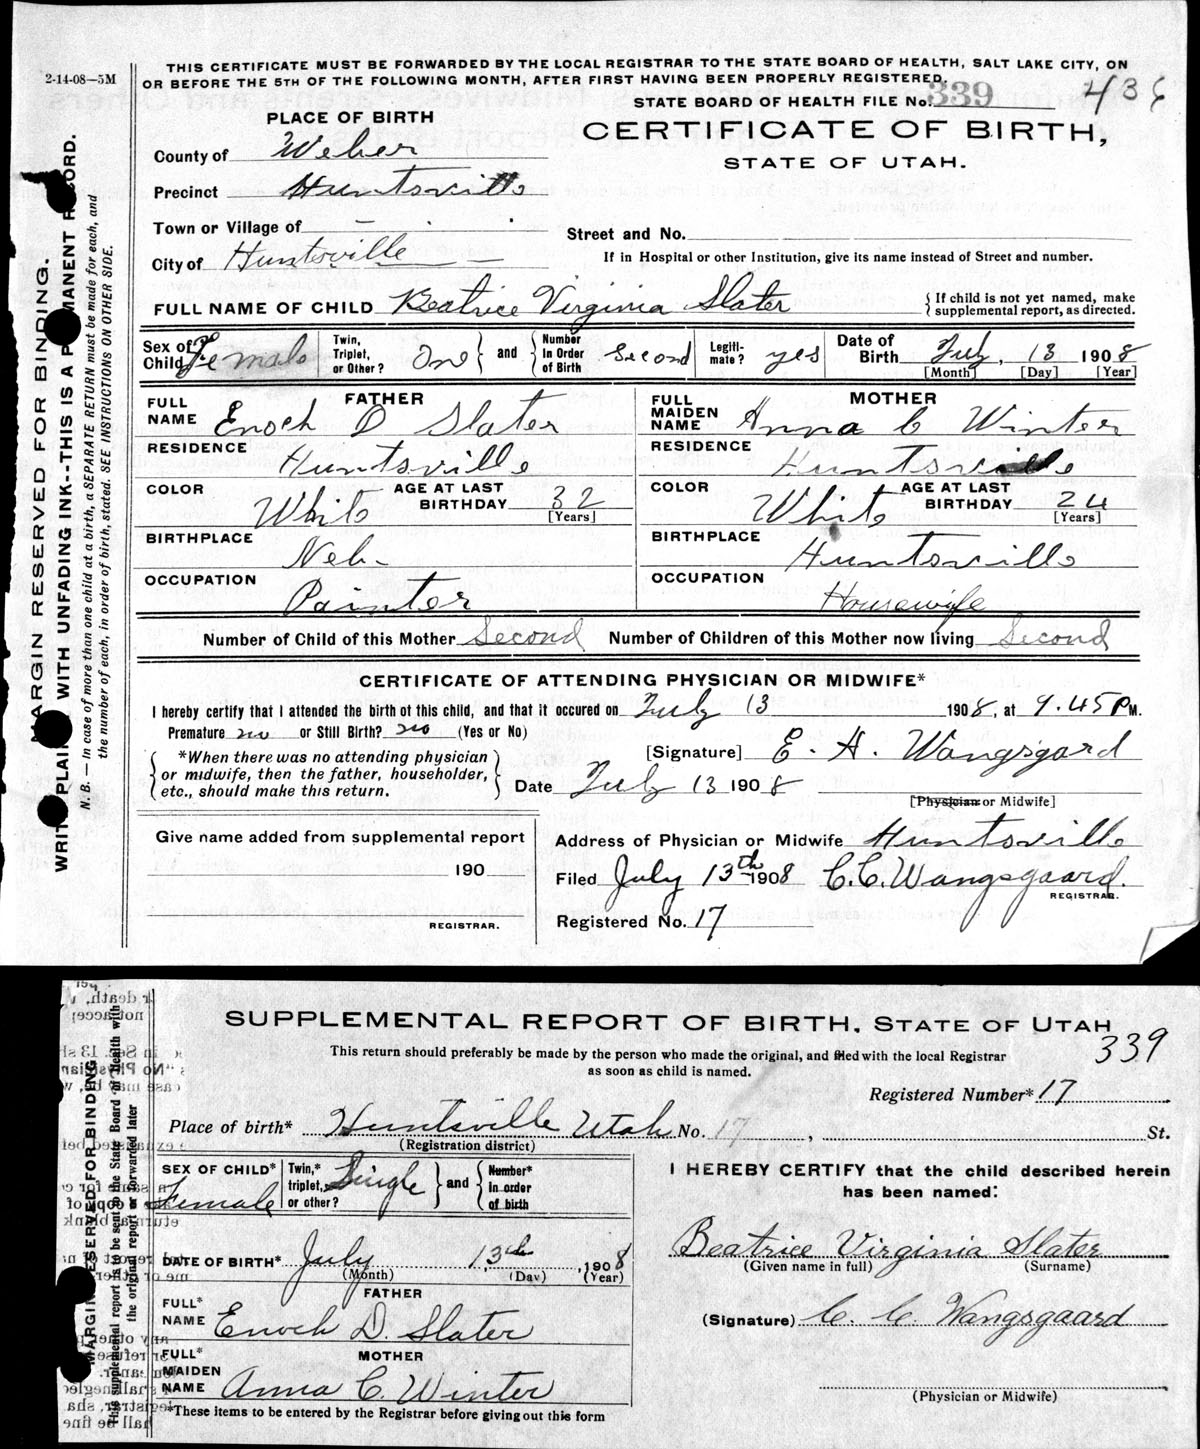 2-14-08—5M
THIS CERTIFICATE MUST BE FORWARDED BY THE LOCAL REGISTRAR TO THE STATE BOARD OF HEALTH, SALT LAKE CITY, ON
OR BEFORE THE 5TH OF THE FOLLOWING MONTH, AFTER FIRST HAVING BEEN PROPERLY REGISTERED.
STATE BOARD OF HEALTH FILE No. 339 436
CERTIFICATE OF BIRTH,
STATE OF UTAH.
PLACE OF BIRTH
County of Weber
Precinct Huntsville
Town or Village of —
City of Huntsville
Street and No.
If in Hospital or other Institution, give its name instead of Street and number.
FULL NAME OF CHILD Beatrice Virginia Slater
If child is not yet named, make
supplemental report, as directed.
Sex of Child Female
Twin, Triplet, or Other? One and Number In Order of Birth Second
Legiti- mate? yes
Date of Birth July 13 1908
[Month] [Day] [Year]
FATHER
FULL NAME Enoch D Slater
RESIDENCE Huntsville
COLOR White AGE AT LAST BIRTHDAY 32
[Years]
BIRTHPLACE Neb-
OCCUPATION Painter
MOTHER
FULL MAIDEN NAME Anna C Winter
RESIDENCE Huntsville
COLOR White AGE AT LAST BIRTHDAY 24
[Years]
BIRTHPLACE Huntsville
OCCUPATION Housewife
Number of Child of this Mother Second Number of Children of this Mother now living Second
CERTIFICATE OF ATTENDING PHYSICIAN OR MIDWIFE*
I hereby certify that I attended the birth of this child, and that it occured on July 13 1908, at 9.45 P M.
Premature no or Still Birth? no (Yes or No)
*When there was no attending physician
or midwife, then the father, householder,
etc., should make this return.
[Signature] E. A. Wangsgard
Date July 13 1908
[Physician or Midwife]
Give name added from supplemental report
190
REGISTRAR.
Address of Physician or Midwife Huntsville
Filed July 13th 1908 C.C. Wangsgaard.
REGISTRAR.
Registered No. 17
MARGIN RESERVED FOR BINDING.
WRITE PLAINLY WITH UNFADING INK--THIS IS A PERMANENT RECORD.
N. B. — In case of more than one child at a birth, a SEPARATE RETURN must be made for each, and
the number of each, in order of birth, stated. SEE INSTRUCTIONS ON OTHER SIDE.
SUPPLEMENTAL REPORT OF BIRTH, STATE OF UTAH
339
This return should preferably be made by the person who made the original, and filed with the local Registrar
as soon as child is named.
Registered Number* 17
Place of birth* Huntsville Utah No. 17, St.
(Registration district)
SEX OF CHILD* Female
Twin,* triplet, or other? Single and Number* in order of birth
DATE OF BIRTH* July 13th, 1908
(Month) (Day) (Year)
FATHER
FULL* NAME Enoch D. Slater
MOTHER
FULL* MAIDEN NAME Anna C. Winter
*These items to be entered by the Registrar before giving out this form
I HEREBY CERTIFY that the child described herein
has been named:
Beatrice Virginia Slater
(Given name in full) (Surname)
(Signature) C. C. Wangsgaard
(Physician or Midwife)
MARGIN RESERVED FOR BINDING
This supplemental report is to be sent to the State Board of Health with
the original report or forwarded later